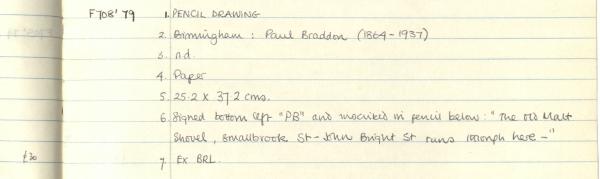 F708'79 1. PENCIL DRAWING
2. Birmingham : Paul Braddon (1864-1937)
3. n.d.
4. Paper
5. 25.2 x 37.2 cms.
6. Signed bottom left "PB" and inscribed in pencil below: "The Old Malt
Shovel, Smallbrook St - John Bright St runs through here -"
£30 7. Ex BRL.